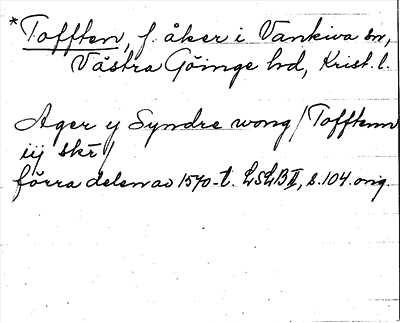 *Tofften, f. åker i Vankiva sn,
Västra Göinge hd, Krist. l.
Ager y Syndre wong / Tofftenn
iij skr /
förra delen av 1570-t. LSLB II, s. 104. orig.